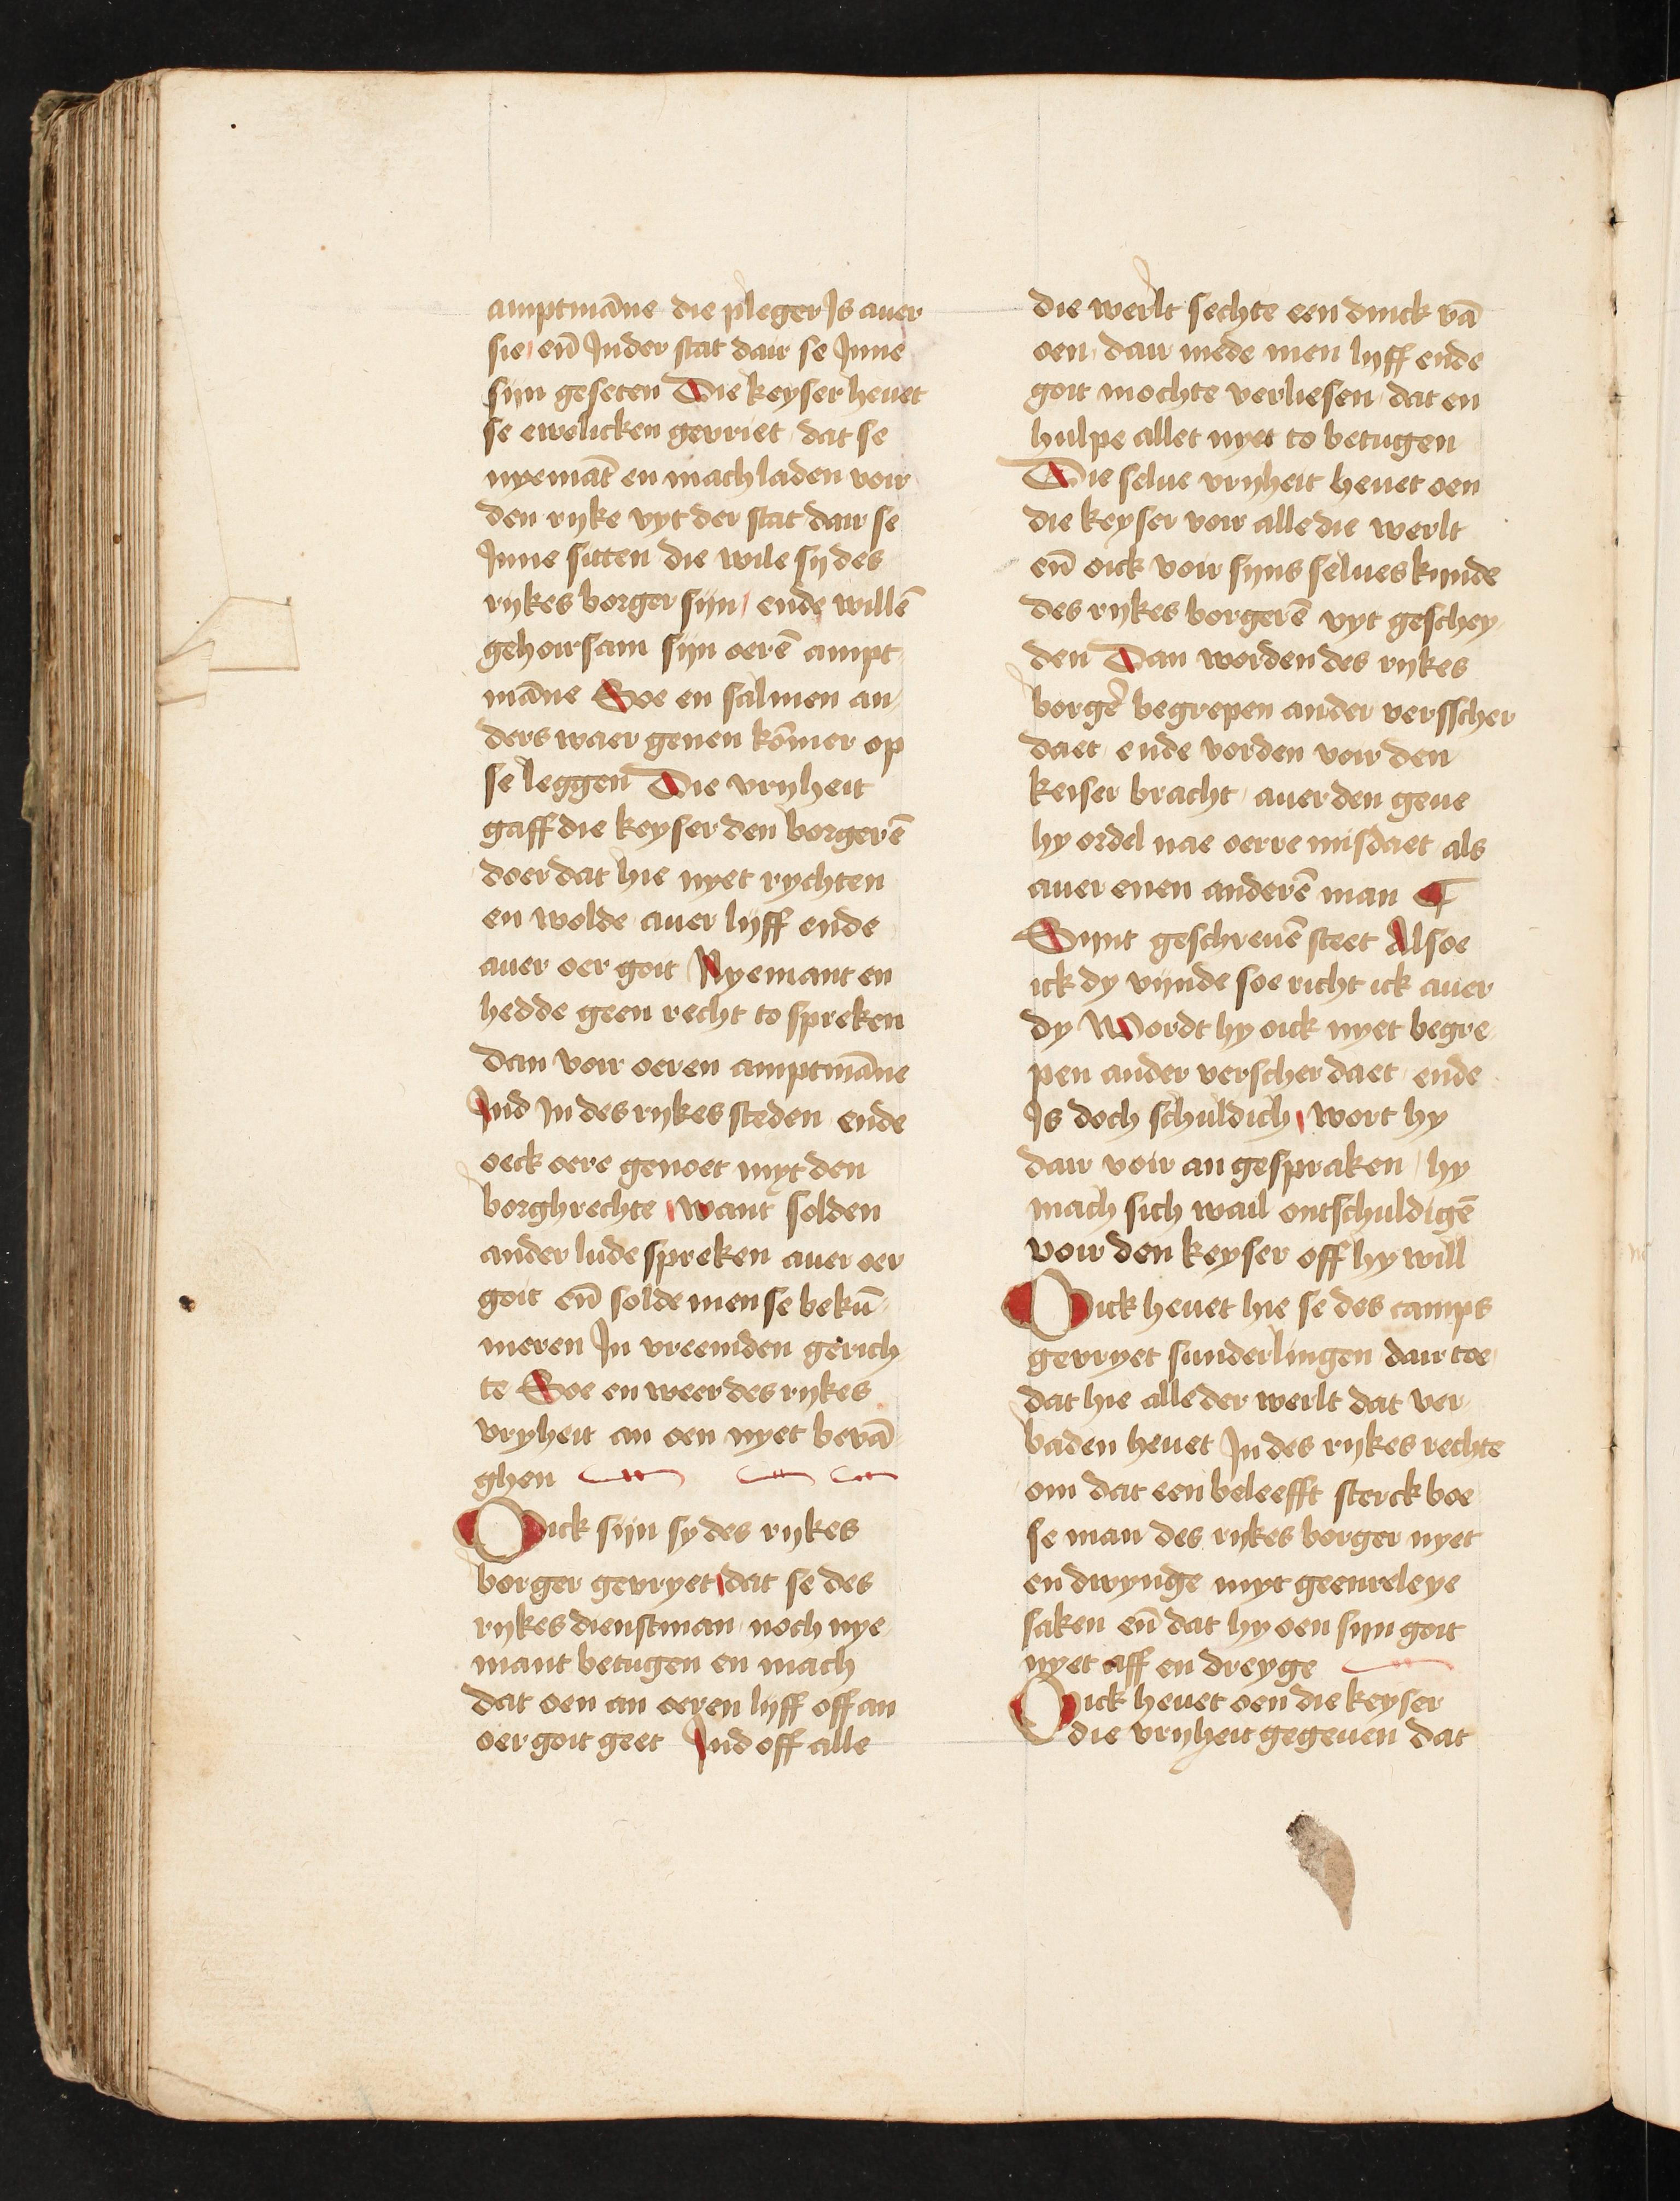 amptmāne die pleger Is auer
sie en̄ Inder stat dair se Inne
sijn geseten Die keyser heuet
se ewelicken gevriet dat se
nyemāt en mach laden voir
den rijke vyt der stat dair se
Inne sitten die wile sij des
rijkes borger sijn ende willē
gehoirsam sijn oerē ampt
māne Soe en sal men an
ders waer genen kōmer op
se leggen Die vrijheit
gaff die keyser den borgerē
doer dat hie nyet rychten
en wolde auer lijff ende
auer oer goit Nyemant en
hedde geen recht to spreken
dan voir oeren amptmāne
Ind In des rijkes steden ende
oeck oere genoet myt den
borghrechte want solden
ander lude spreken auer oer
goit en̄ solde men se bekū
meren In vreemden gerich
te Soe en weer des rijkes
vryheit an oen nyet bevā
ghen
Oick sijn sy des rijkes
borger gevryet dat se des
rijkes dienstman noch nye
mant betugen en mach
dat oen an oeren lijff off an
oer goit geet Ind off alle
die werlt sechte een dinck vā
oen dair mede men lijff ende
goit mochte verliesen dat en
hulpe allet nyet to betugen
Die selue vrijheit heuet oen
die keyser voir alle die werlt
en̄ oick voir sijns selues kijnde
des rijkes borgerē vyt geschey
den Dan worden des rijkes
borgē begrepen ander versscher
daet ende vorden voir den
keiser bracht auer den geue
hy ordel nae oerre misdaet als
auer enen anderē man ¶
Sijnt geschreuē steet Alsoe
ick dy vijnde soe richt ick auer
dy Wordt hy oick nyet begre
pen ander verscher daet ende
Is doch schuldich wort hy
dair voir an gespraken hy
mach sich wail ontschuldigē
voir den keyser off hy will
Oick heuet hie se des camps
gevryet sunderlingen dair toe
dat hie alle der werlt dat ver
baden heuet In des rijkes rechte
om dat een beleefft sterck boe
se man des rijkes borger nyet
en dwynge myt geenreleye
saken en̄ dat hy oen sijn goit
nyet aff en dreyge
Oick heuet oen die keyser
die vrijheit gegeuen dat